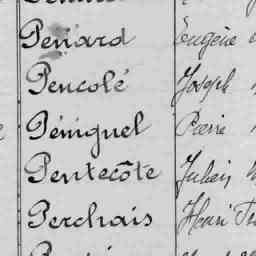 Penard Eugène
Pencolé Joseph
Péniguel Pierre
Pentecôte Julien
Perchais Henri